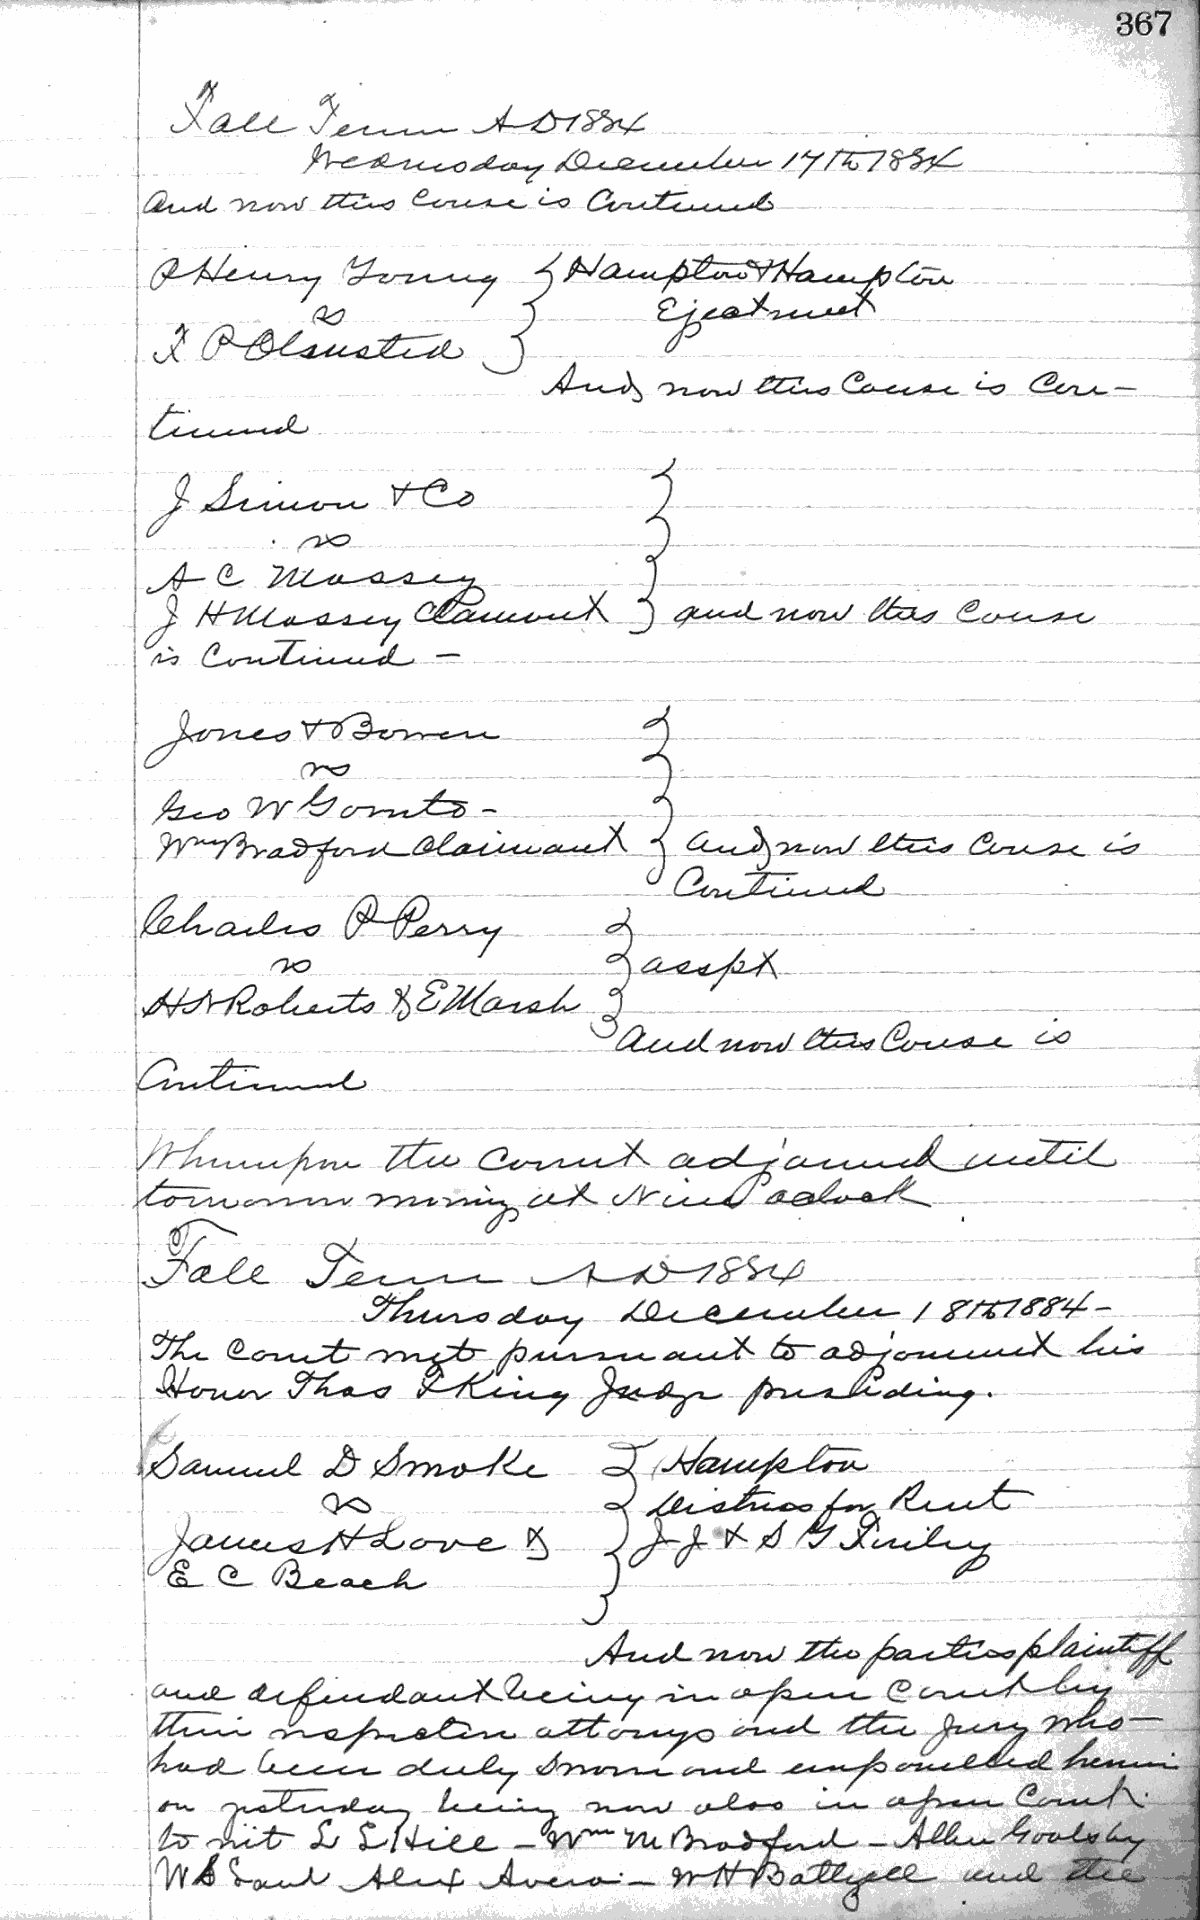 367
Fall Term A D 1884
Wednesday December 17th 1884
And now this Cause is Continued
P Henry Young } Hampton & Hampton
vs Ejectment
F P Olmsted }
And now this Cause is Con-
tinued
J Simon & Co
vs
A C Massey
J H Massey Claimant } and now this Cause
is Continued -
Jones & Bowen
vs
Geo W Gornto -
Wm Bradford Claimant } and now this Cause is
Continued
Charles P Perry
vs } asspt
H N Roberts & E Marsh
And now this Cause is
Continued
Whereupon the Court adjourned until
tomorrow morning at Nine oclock
Fall Term A D 1884
Thursday December 18th 1884 -
The Court met pursuant to adjournment his
Honor Thos F King Judge presiding.
Samuel D Smoke } Hampton
vs Distress for Rent
James H Love & } J J & S G Finley
E C Beach
And now the parties plaintiff
and defendant being in open Court by
their respective attorneys and the Jury who -
had been duly sworn and empanelled herein
on yesterday being now also in open Court
to wit L L Hill - Wm M Bradford - Allen Goolsby
W S Alex Avera - W H Baltzell and the